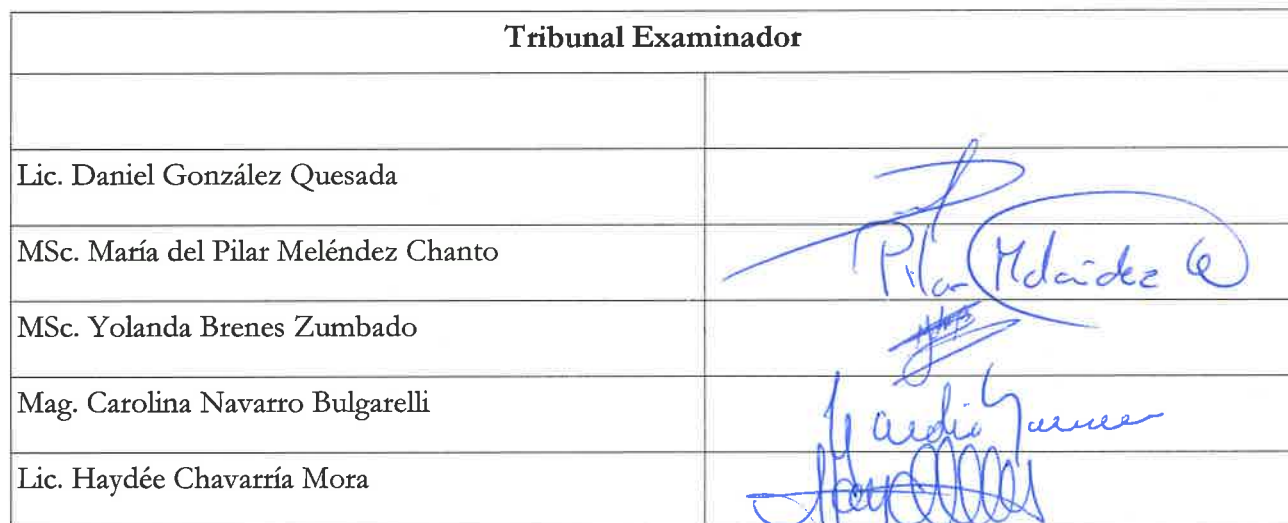 Tribunal Examinador
Lic. Daniel González Quesada
MSc. María del Pilar Meléndez Chanto
Pilar Meléndez
MSc. Yolanda Brenes Zumbado
Mag. Carolina Navarro Bulgarelli
Lic. Haydée Chavarría Mora